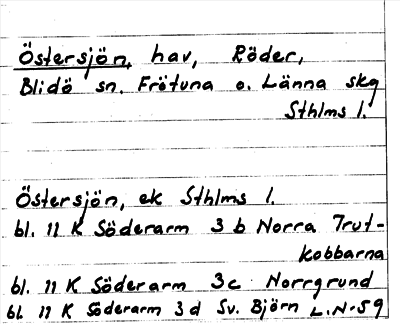 Östersjön, hav, Röder,
Blidö sn. Frötuna o. Länna skg
Sthlms l.
Östersjön, ek Sthlms l.
bl. 11 K Söderarm 3 b Norra Trut-
kobbarna
bl. 11 K Söderarm 3c Norrgrund
bl. 11 K Söderarm 3 d Sv. Björn L.N.59